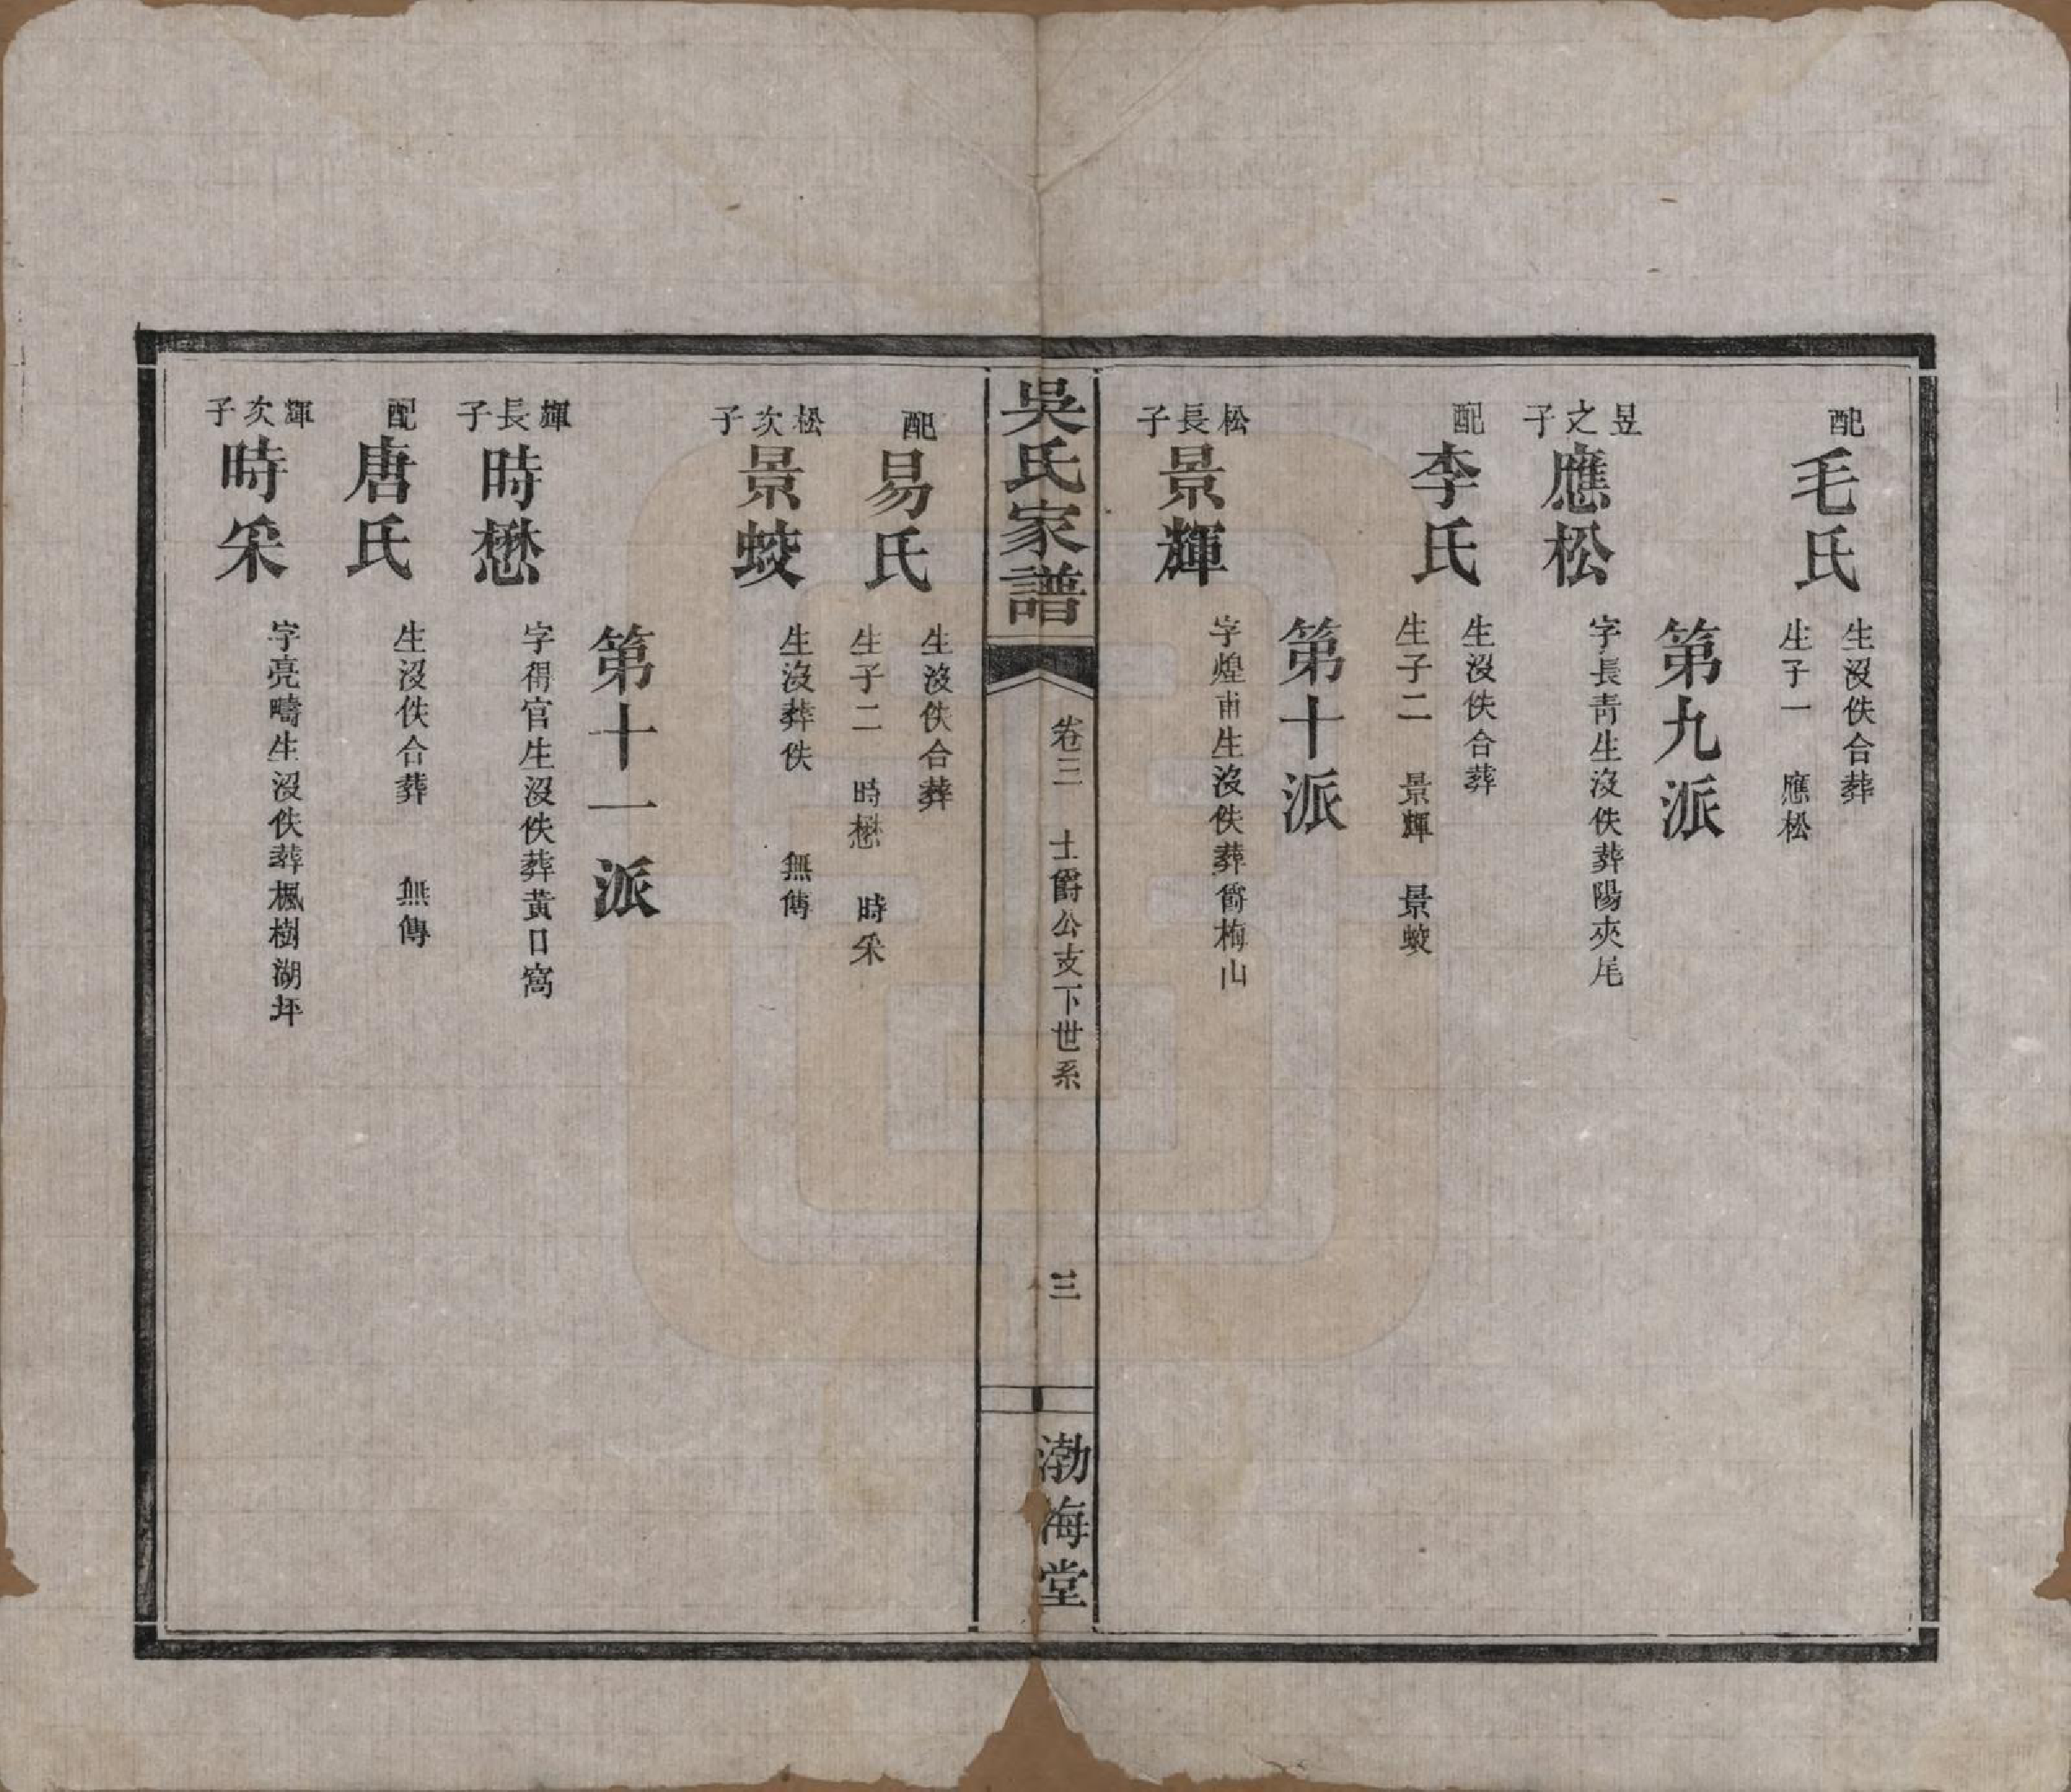 配毛氏
生沒佚合葬
生子一　應松
第九派
昱之子應松
字長青生沒佚葬陽夾尾
配李氏
生沒佚合葬
生子二　景輝　景蛟
第十派
松長子景輝
字煌甫生沒佚葬簥梅山
吳氏家譜
卷三　士爵公支下世系
三
渤海堂
配易氏
生沒佚合葬
生子二　時懋　時釆
松次子景蛟
生沒葬佚　無傳
第十一派
輝長子時懋
字得官生沒佚葬黃日窩
配唐氏
生沒佚合葬　無傳
輝次子時釆
字亮疇生沒佚葬楓樹湖坪